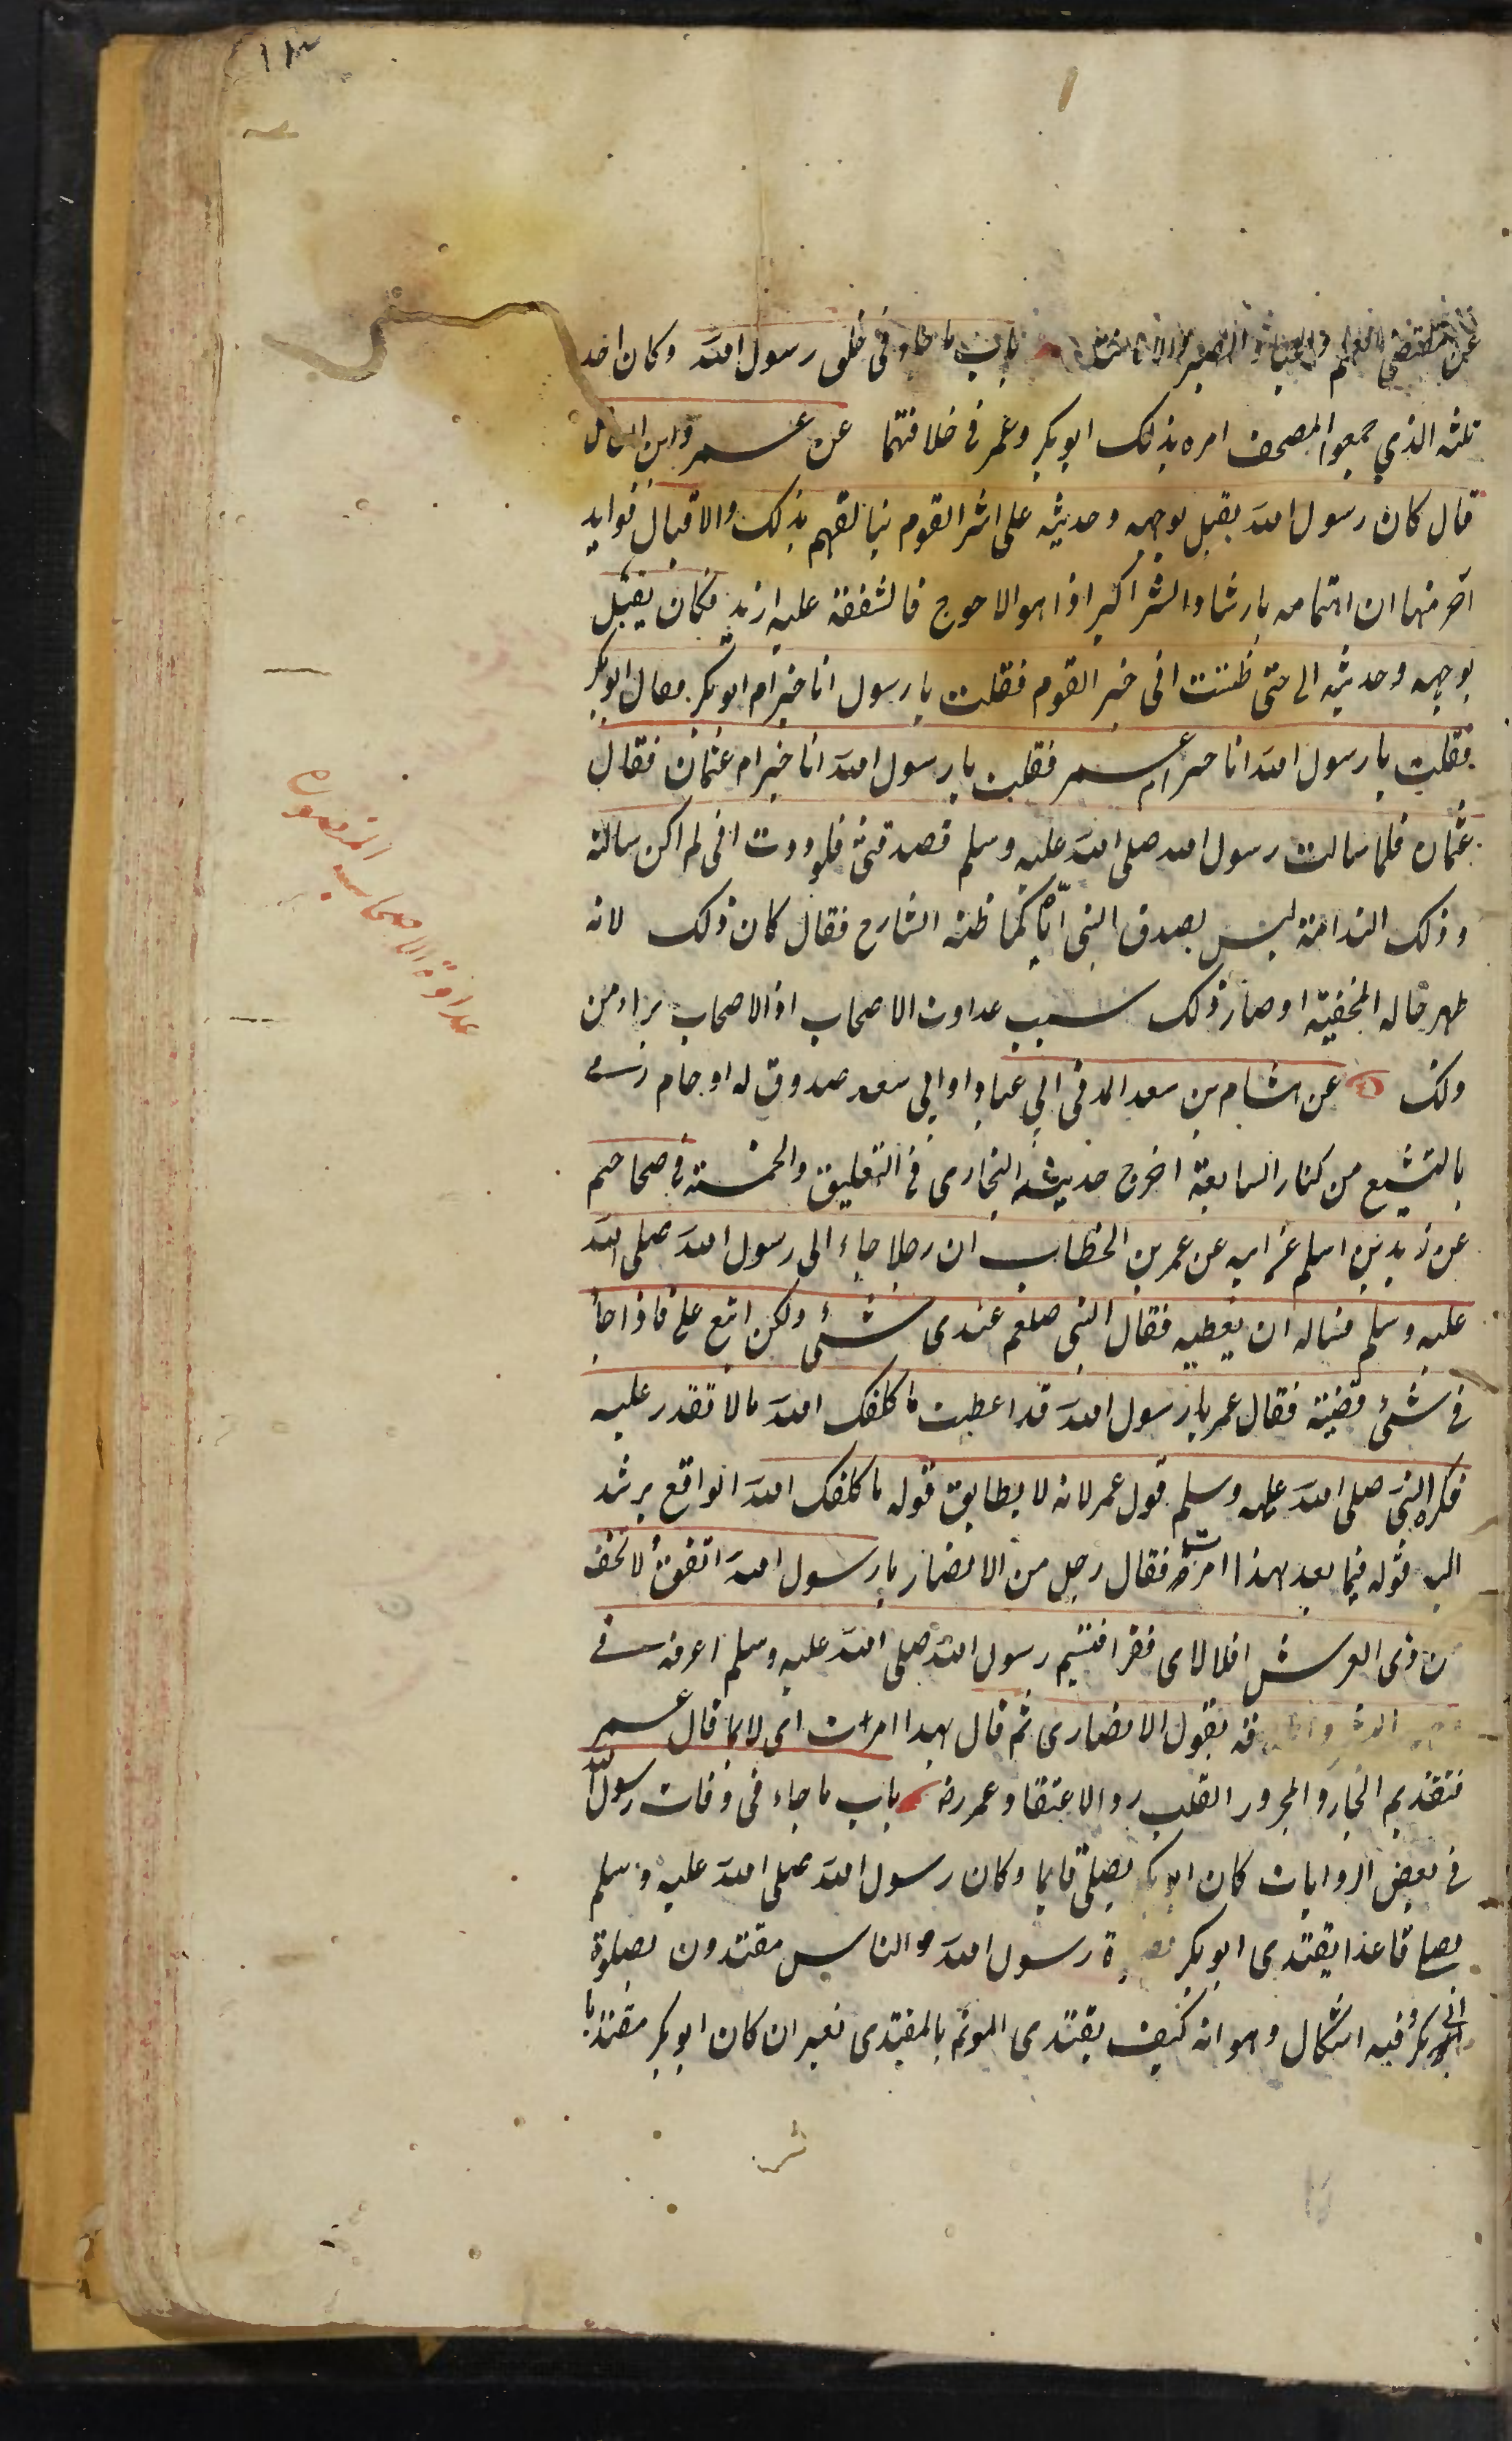 ١٣
عن مقتضى العلم والحياء والصبر والامانة باب ما جاء فى خلق رسول الله وكان احد
ثلثه الذي جمعوا المصحف امره بذلك ابو بكر وعمر فى خلافتهما عن عمرو ابن العاص
قال كان رسول الله يقبل بوجهه وحديثه على اشر القوم يتالفهم بذلك والاقبال فوايد
آخر منها ان اهتمامه بارشاد الشر اكبر اذا هو الاحوج فالشفقة عليه ازيد فكان يقبل
بوجهه وحديثه الى حتى ظننت انى خير القوم فقلت يا رسول انا خير ام ابو بكر فقال ابو بكر
فقلت يا رسول الله انا خير ام عمر فقلت يا رسول الله انا خير ام عثمان فقال
عثمان فلما سالت رسول الله صلى الله عليه وسلم فصدقنى فلوددت انى لم اكن سالته
وذلك الندامة ليس بصدق النبى اياه كما ظنه الشارح فقال كان ذلك لانه
ظهر حاله المخفية او صار ذلك سبب عداوت الاصحاب اذ الاصحاب براء من
ذلك عن هشام بن سعد المدنى ابي عباد او ابي سعد صدوق له اوهام رمى
بالتشيع من كبار السابعة اخرج حديثه البخارى فى التعليق والخمسة فى صحاحهم
عن زيد بن اسلم عن ابيه عن عمر بن الخطاب ان رجلا جاء الى رسول الله صلى الله
عليه وسلم فساله ان يعطيه فقال النبى صلعم عندى شئ ولكن ابتع على فاذا جاء
نى شئ قضيته فقال عمر يا رسول الله قد اعطيت ما كلفك الله ما لا تقدر عليه
فكره النبى صلى الله عليه وسلم قول عمر لانه لا يطابق قوله ما كلفك الله الواقع يرشد
اليه قوله فيما بعد بهذا امرت فقال رجل من الانصار يا رسول الله انفق ولا تخف
من ذى العرش اقلالا اى فقرا فتبسم رسول الله صلى الله عليه وسلم اعرف فى
البشر بقول الانصارى ثم قال بهذا امرت اى لا بما قال عمر
فتقديم الجار والمجرور القلب رد الاعتقاد عمر رض باب ما جاء فى وفات رسول الله
فى بعض الروايات كان ابو بكر يصلى قايما وكان رسول الله صلى الله عليه وسلم
يصلى قاعدا يقتدى ابو بكر بصلوة رسول الله والناس مقتدون بصلوة
ابى بكر وفيه اشكال وهو انه كيف يقتدى المؤتم بالمقتدى نعم ان كان ابو بكر مقتديا
عداوة الاصحاب